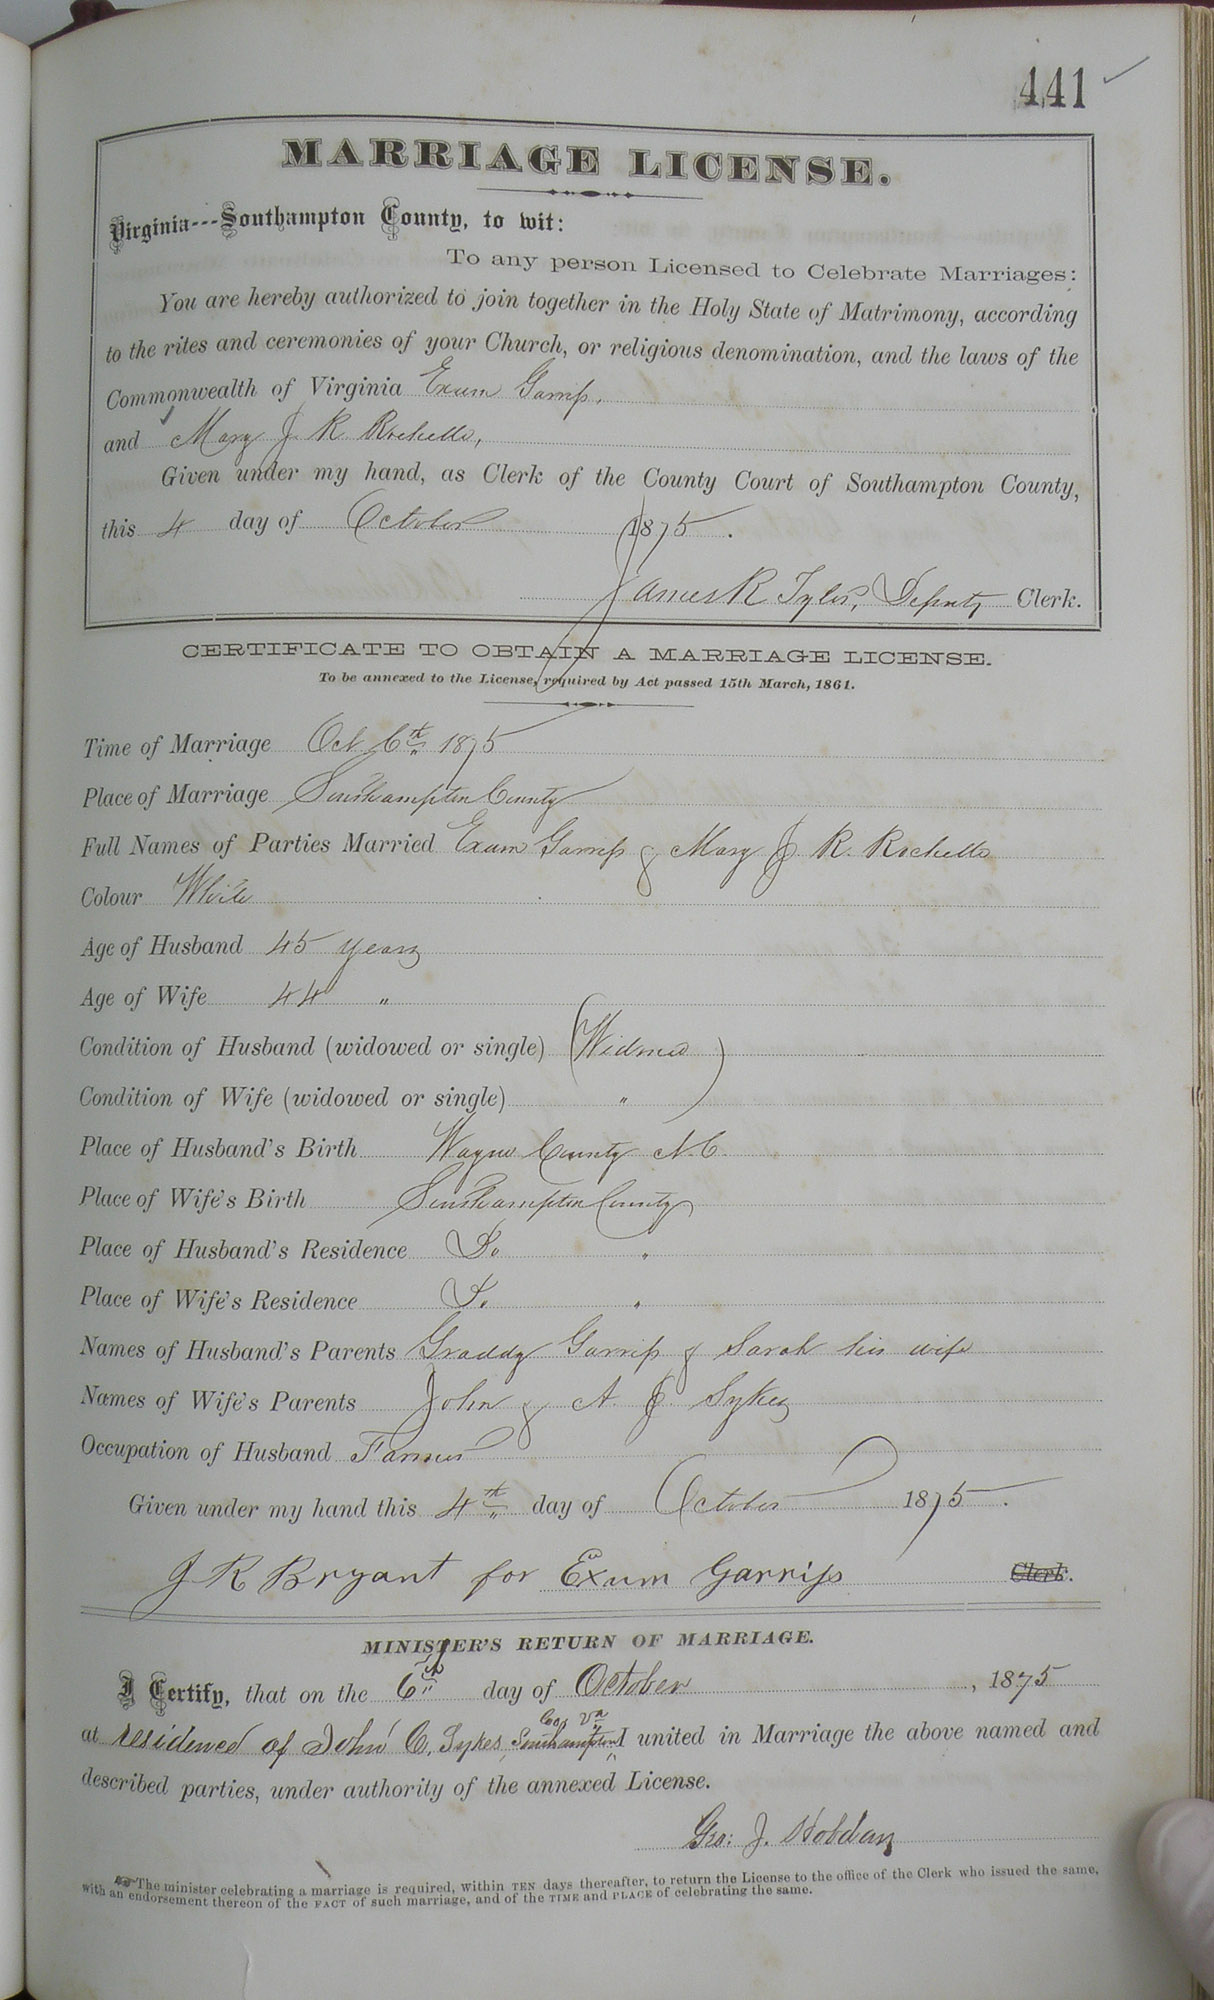 441
MARRIAGE LICENSE.
Virginia---Southampton County, to wit:
To any person Licensed to Celebrate Marriages:
You are hereby authorized to join together in the Holy State of Matrimony, according
to the rites and ceremonies of your Church, or religious denomination, and the laws of the
Commonwealth of Virginia Exum Garriss,
and Mary J R Rochelle,
Given under my hand, as Clerk of the County Court of Southampton County,
this 4 day of October 1875.
James R Tyler, Deputy Clerk.
CERTIFICATE TO OBTAIN A MARRIAGE LICENSE.
To be annexed to the License, required by Act passed 15th March, 1861.
Time of Marriage Oct 6th 1875
Place of Marriage Southampton County
Full Names of Parties Married Exum Garriss & Mary J R. Rochelle
Colour White
Age of Husband 45 years
Age of Wife 44 "
Condition of Husband (widowed or single) (Widowed)
Condition of Wife (widowed or single) "
Place of Husband's Birth Wayne County N.C.
Place of Wife's Birth Southampton County
Place of Husband's Residence Do "
Place of Wife's Residence Do "
Names of Husband's Parents Graddy Garriss & Sarah his wife
Names of Wife's Parents John & A. J. Sykes
Occupation of Husband Farmer
Given under my hand this 4th day of October 1875.
J R Bryant for Exum Garriss Clerk.
MINISTER'S RETURN OF MARRIAGE.
I Certify, that on the 6th day of October, 1875
at residence of John C. Sykes, Southampton Co, Va I united in Marriage the above named and
described parties, under authority of the annexed License.
Geo: J. Hobday
The minister celebrating a marriage is required, within TEN days thereafter, to return the License to the office of the Clerk who issued the same,
with an endorsement thereon of the FACT of such marriage, and of the TIME and PLACE of celebrating the same.